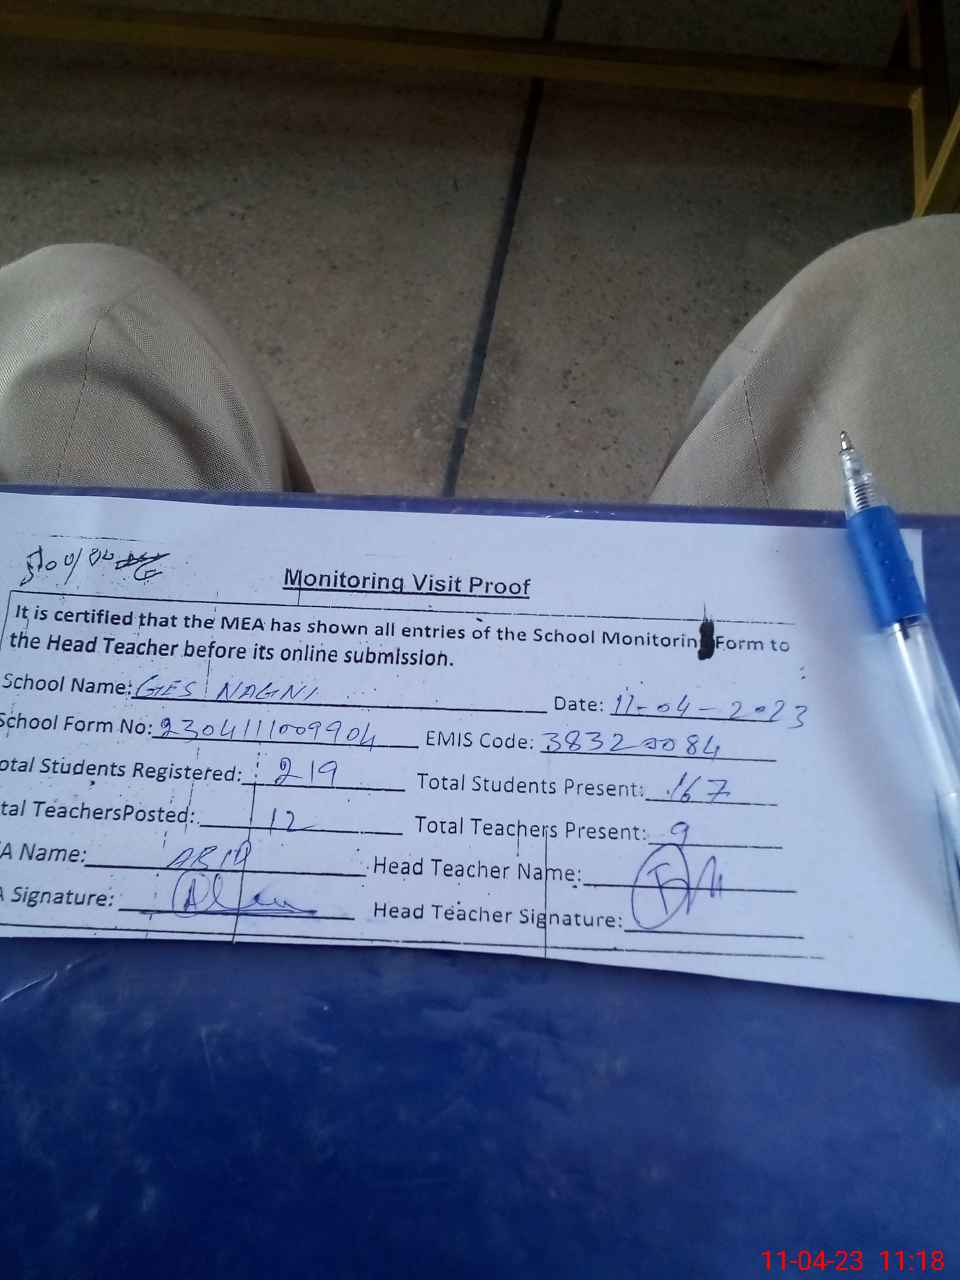 Monitoring Visit Proof
It is certified that the MEA has shown all entries of the School Monitorin Form to
the Head Teacher before its online submission.
School Name: GES NAGNI Date: 11-04-2023
School Form No: 2304111009904 EMIS Code: 38320084
otal Students Registered: 219 Total Students Present: 167
tal TeachersPosted: 12 Total Teachers Present: 9
A Name: ABID Head Teacher Name:
A Signature: Head Teacher Signature:
11-04-23 11:18